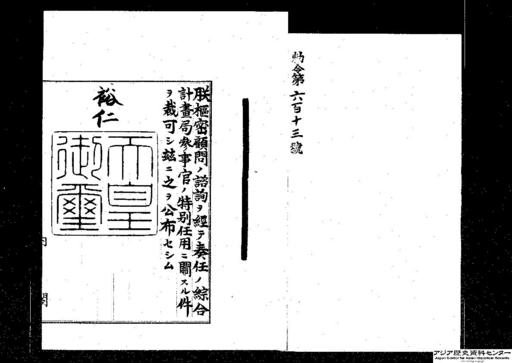 勅令第六百十三號
朕樞密顧問ノ諮詢ヲ經テ奏任ノ綜合
計畫局參事官ノ特別任用ニ關スル件
ヲ裁可シ玆ニ之ヲ公布セシム
裕仁
天皇
御璽
内閣
アジア歴史資料センター
Japan Center for Asian Historical Records